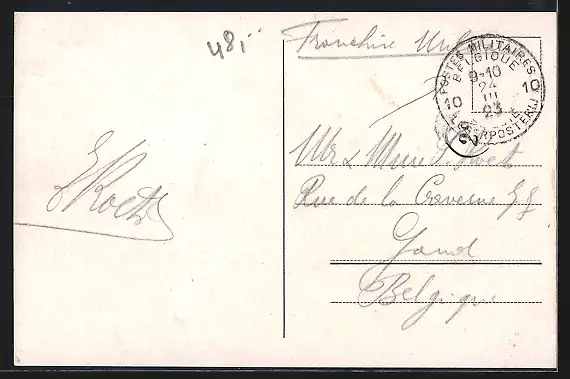 48,-
Franchise
POSTES MILITAIRES
BELGIQUE
9-10
24
III
23
10
10
LEGERPOSTERIJ
E Roets
Mr & Mme
Rue de la Caverne
Gand
Belgique